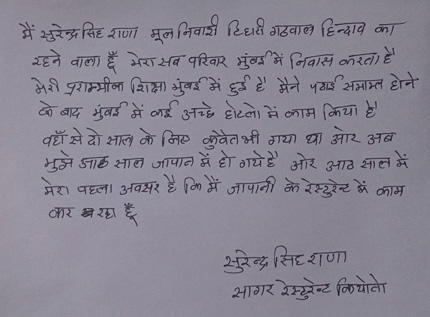 मैं सुरेन्द्र सिंह राणा मूल निवासी टिहरी गढवाल हिन्दाव का
रहने वाला हूँ मेरा सब परिवार मुंबई में निवास करता है
मेरी प्राम्भीक शिक्षा मुंबई में हुई है मैने पढाई समाप्त होने
के बाद मुंबई में कई अच्छे होटलो में काम किया है
वहाँ से दो साल के लिए कुवेत भी गया था ओर अब
मुझे आठ साल जापान में हो गये है ओर आठ साल में
मेरा पहला अवसर है कि मैं जापानी के रेस्टुरेन्ट में काम
कर रहा हूँ
सुरेन्द्र सिंह राणा
सागर रेस्टुरेन्ट कियोतो